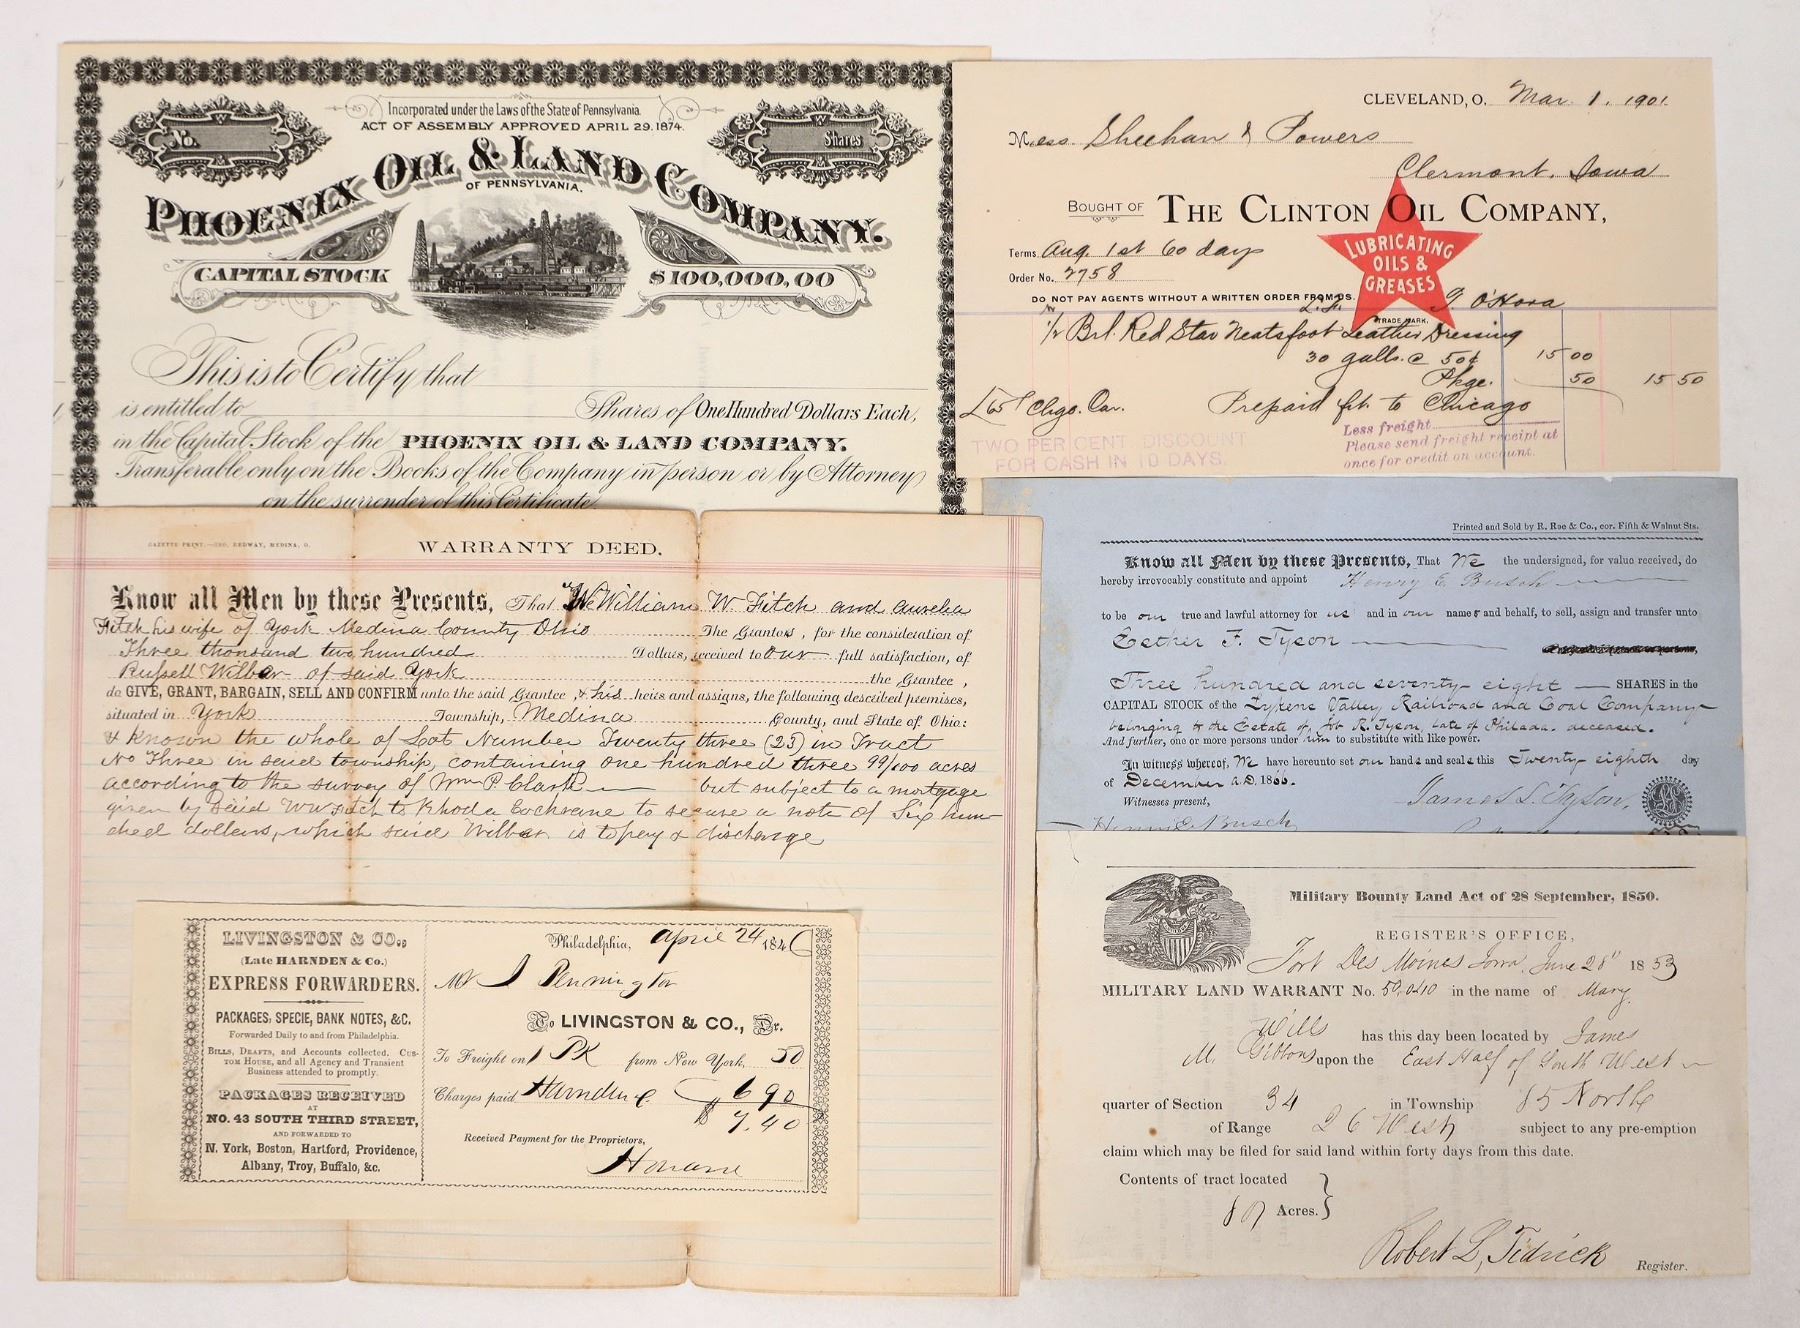 Incorporated under the Laws of the State of Pennsylvania.
ACT OF ASSEMBLY APPROVED APRIL 29. 1874.
No.
Shares
PHOENIX OIL & LAND COMPANY.
OF PENNSYLVANIA.
CAPITAL STOCK $100,000,00
This is to Certify that
is entitled to Shares of One Hundred Dollars Each,
in the Capital Stock of the PHOENIX OIL & LAND COMPANY.
Transferable only on the Books of the Company in person or by Attorney
on the surrender of this Certificate
CLEVELAND, O. Mar. 1. 1901.
Mess. Sheehan & Powers
Clermont, Iowa
BOUGHT OF THE CLINTON OIL COMPANY,
LUBRICATING
OILS &
GREASES
TRADE MARK.
Terms Aug 1st 60 days
Order No. 2758
DO NOT PAY AGENTS WITHOUT A WRITTEN ORDER FROM US.
O'Hora
1/2 Brl. Red Star Neatsfoot Leather Dressing
30 galls. @ 50¢ 15 00
Pkge. 50 15 50
Chgo. Car. Prepaid frt. to Chicago
TWO PER CENT. DISCOUNT
FOR CASH IN 10 DAYS.
Less freight
Please send freight receipt at
once for credit on account.
GAZETTE PRINT.—GEO. REDWAY, MEDINA, O.
WARRANTY DEED.
Know all Men by these Presents, That We William W. Fitch and Aurelia
Fitch his wife of York Medina County Ohio The Grantors, for the consideration of
Three thousand two hundred Dollars, received to our full satisfaction, of
Russell Wilber of said York the Grantee,
do GIVE, GRANT, BARGAIN, SELL AND CONFIRM unto the said Grantee, & his heirs and assigns, the following descried premises,
situated in York Township, Medina County, and State of Ohio:
& known the whole of Lot Number Twenty three (23) in Tract
No Three in said township, containing one hundred three 99/100 acres
according to the survey of Wm P. Clark but subject to a mortgage
given by said W W Fitch to Rhoda Cochrane to secure a note of Six hun-
dred dollars, which said Wilber is to pay & discharge
Printed and Sold by R. Rae & Co., cor. Fifth & Walnut Sts.
Know all Men by these Presents, That We the undersigned, for value received, do
hereby irrevocably constitute and appoint Henry E. Busch
to be our true and lawful attorney for us and in our names and behalf, to sell, assign and transfer unto
Esther F. Tyson
Three hundred and seventy-eight SHARES in the
CAPITAL STOCK of the Lykens Valley Railroad and Coal Company
belonging to the Estate of Job R. Tyson, late of Philada. deceased.
And further, one or more persons under him to substitute with like power.
In witness whereof, We have hereunto set our hands and seals this Twenty eighth day
of December A.D. 1866.
Witnesses present, James L. Tyson,
Henry E. Busch
LIVINGSTON & CO.,
(Late HARNDEN & Co.)
EXPRESS FORWARDERS.
PACKAGES, SPECIE, BANK NOTES, &C.
Forwarded Daily to and from Philadelphia.
BILLS, DRAFTS, and Accounts collected. CUS-
TOM HOUSE, and all Agency and Transient
Business attended to promptly.
PACKAGES RECEIVED
AT
NO. 43 SOUTH THIRD STREET,
AND FORWARDED TO
N. York, Boston, Hartford, Providence,
Albany, Troy, Buffalo, &c.
Philadelphia, April 24 1846
Mr J Pennington
To LIVINGSTON & CO., Dr.
To Freight on 1 PK from New York, 50
Charges paid 6 90
$ 7.40
Received Payment for the Proprietors,
Military Bounty Land Act of 28 September, 1850.
REGISTER'S OFFICE,
Fort Des Moines Iowa, June 28" 1853
MILITARY LAND WARRANT No. 50,040 in the name of Mary
Wills has this day been located by James
M. Gibbons upon the East Half of South West
quarter of Section 34 in Township 85 North
of Range 26 West subject to any pre-emption
claim which may be filed for said land within forty days from this date.
Contents of tract located
80 Acres.
Robert L. Tidrick
Register.